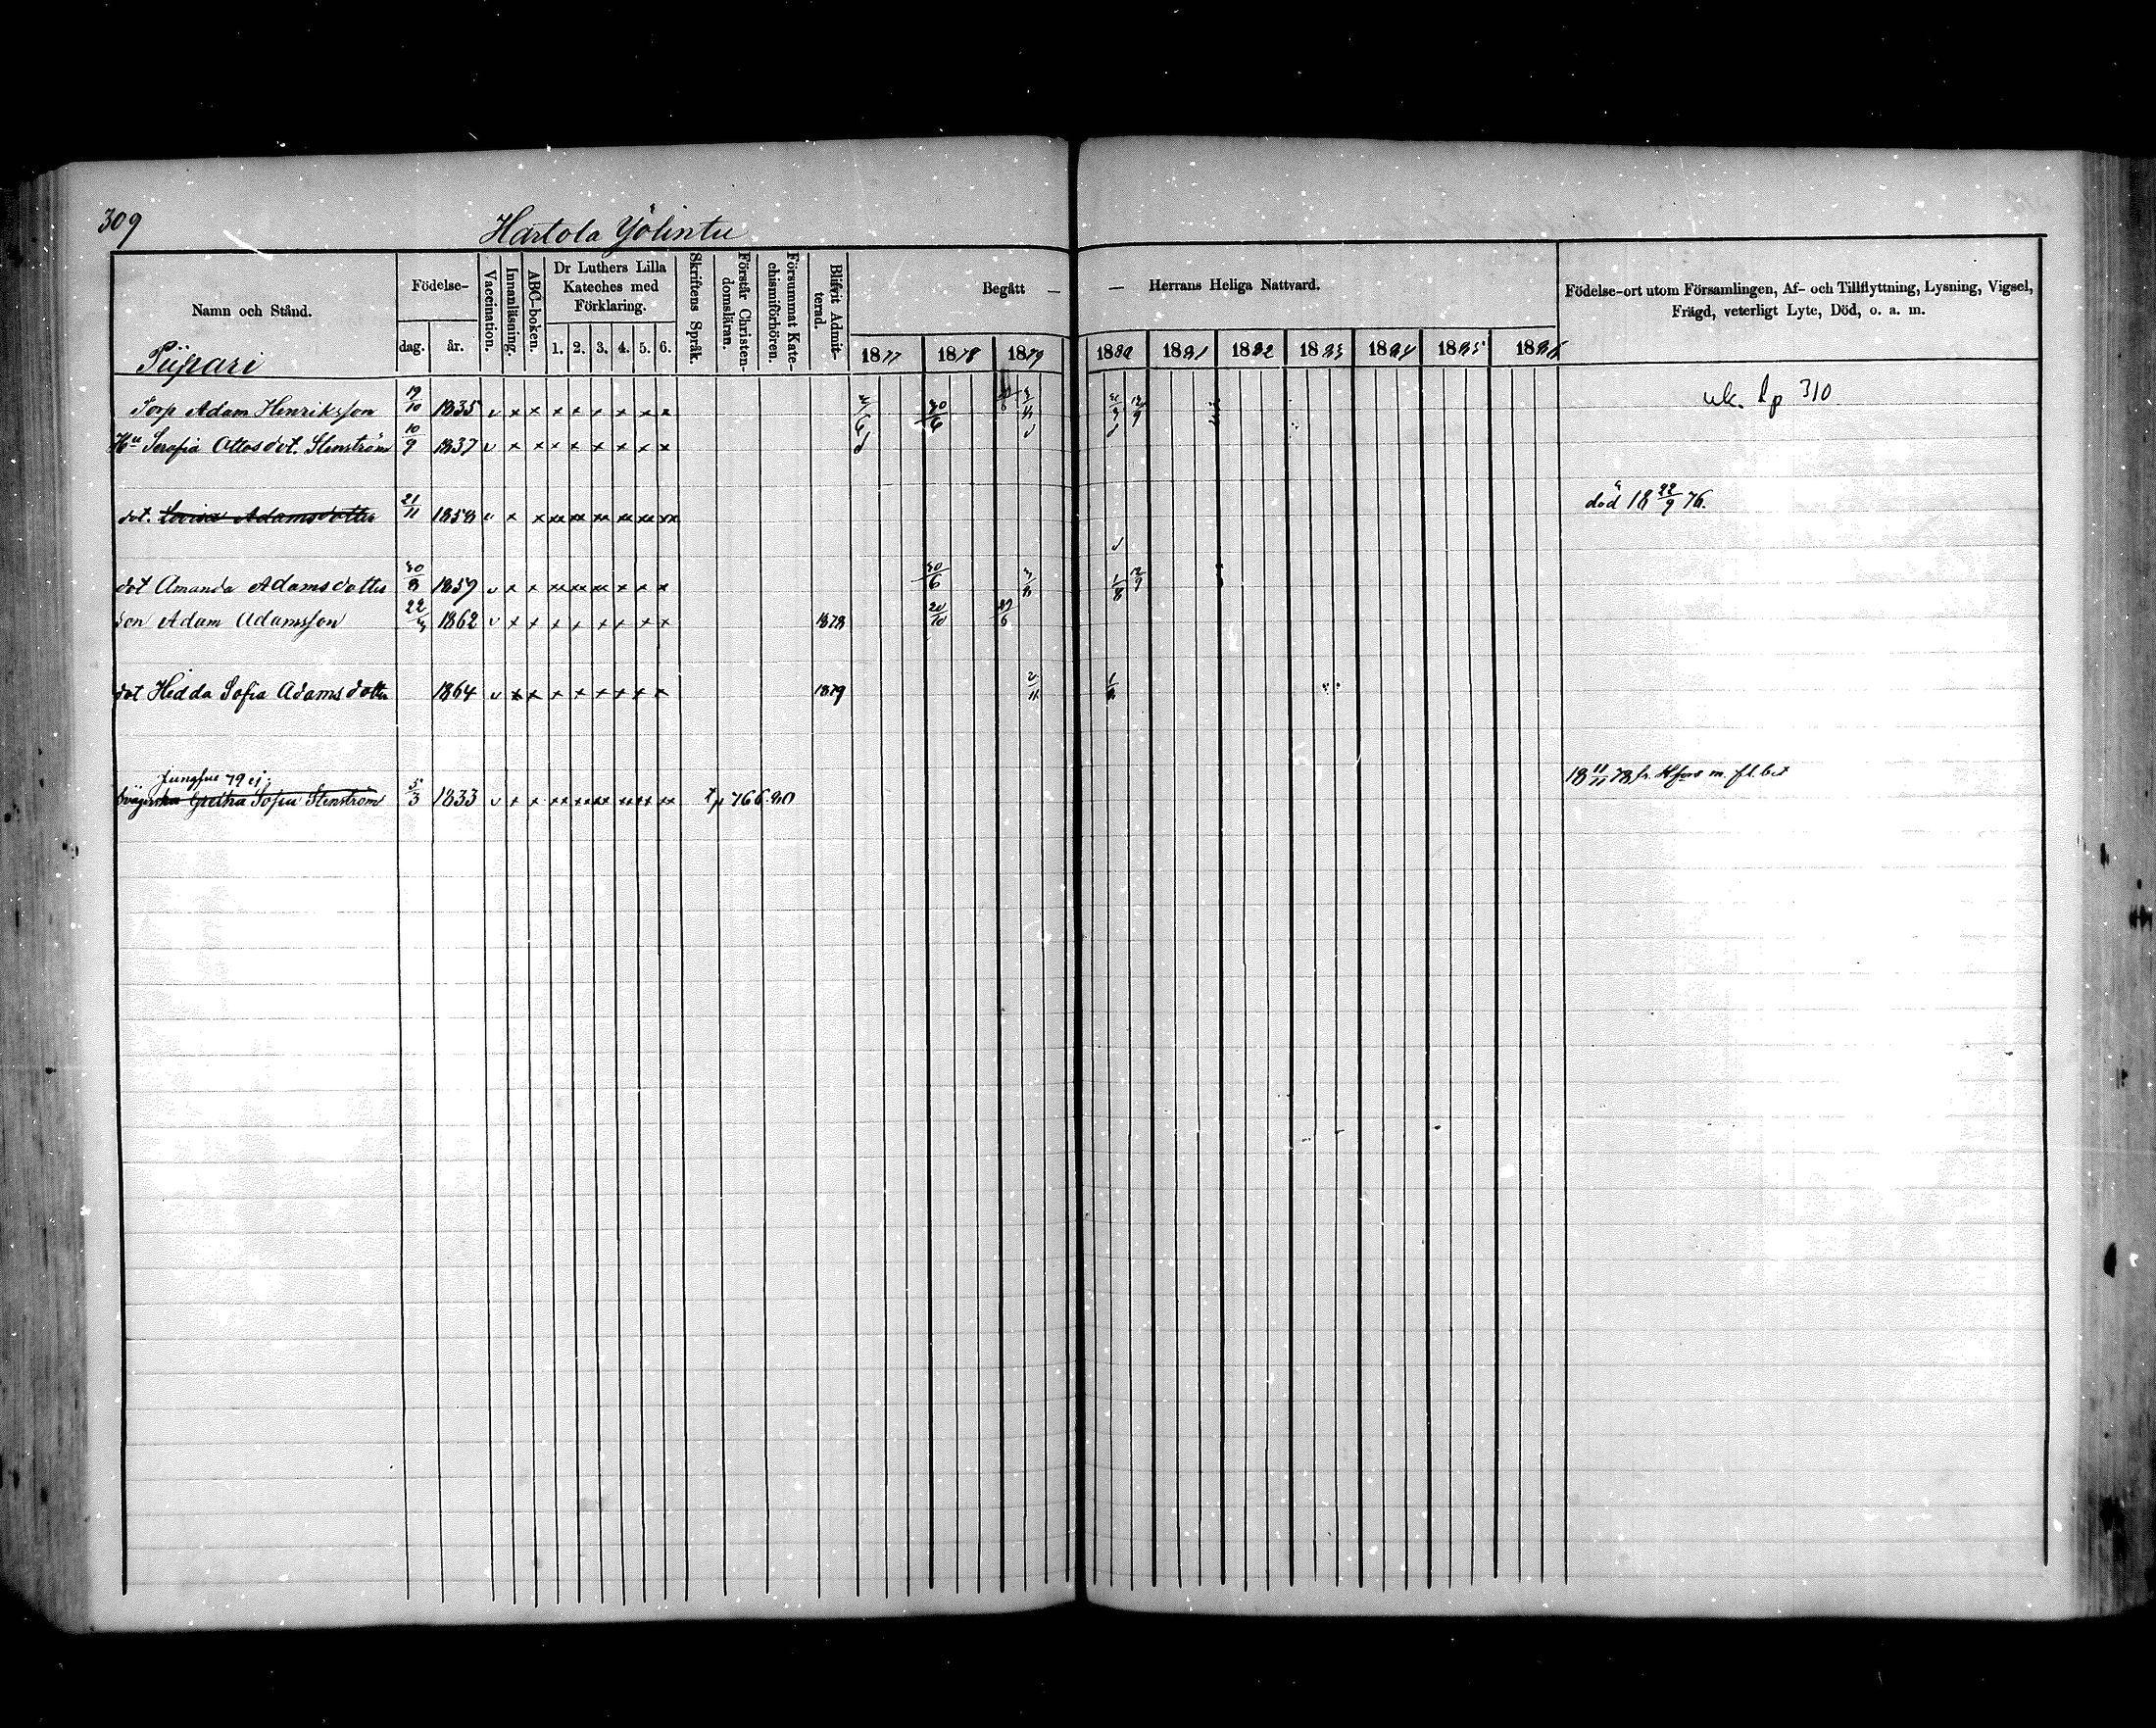 309
Hartola Yölintu
Namn och Stånd.
Födelse-
dag.
år.
Vaccination.
Innanläsning.
ABC-boken.
Dr Luthers Lilla
Kateches med
Förklaring.
1. 2. 3. 4. 5. 6.
Skriftens Språk.
Förstår Christen-
domsläran.
Försummat Kate-
chismiförhören.
Blifvit Admit-
terad.
Begått —
— Herrans Heliga Nattvard.
1877 1878 1879 1880 1881 1882 1883 1884 1885 1886
Födelse-ort utom Församlingen, Af- och Tillflyttning, Lysning, Vigsel,
Frägd, veterligt Lyte, Död, o. a. m.
Piipari
Torp Adam Henriksson 19/10 1835 v x x x x x x x x 30/6
uk. Lp 310
Hu Serafia Ottosdot. Stenström 10/9 1837 v x x x x x x x x
dot. Lovisa Adamsdotter 21/11 1858 död 18 22/9 76.
dot Amanda Adamsdotter 30/8 1859 v x x 30/6
son Adam Adamsson 22/3 1862 v x x x x x x x x 1878 20/10
dot Hedda Sofia Adamsdotter 1864 v x x x x x x x x 1879
Jungfru 79 ej.
Svägerska Gretha Sofia Stenström 5/3 1833 v x x tp 766.80 18 11/11 78 fr. Hfors m. fl. bet